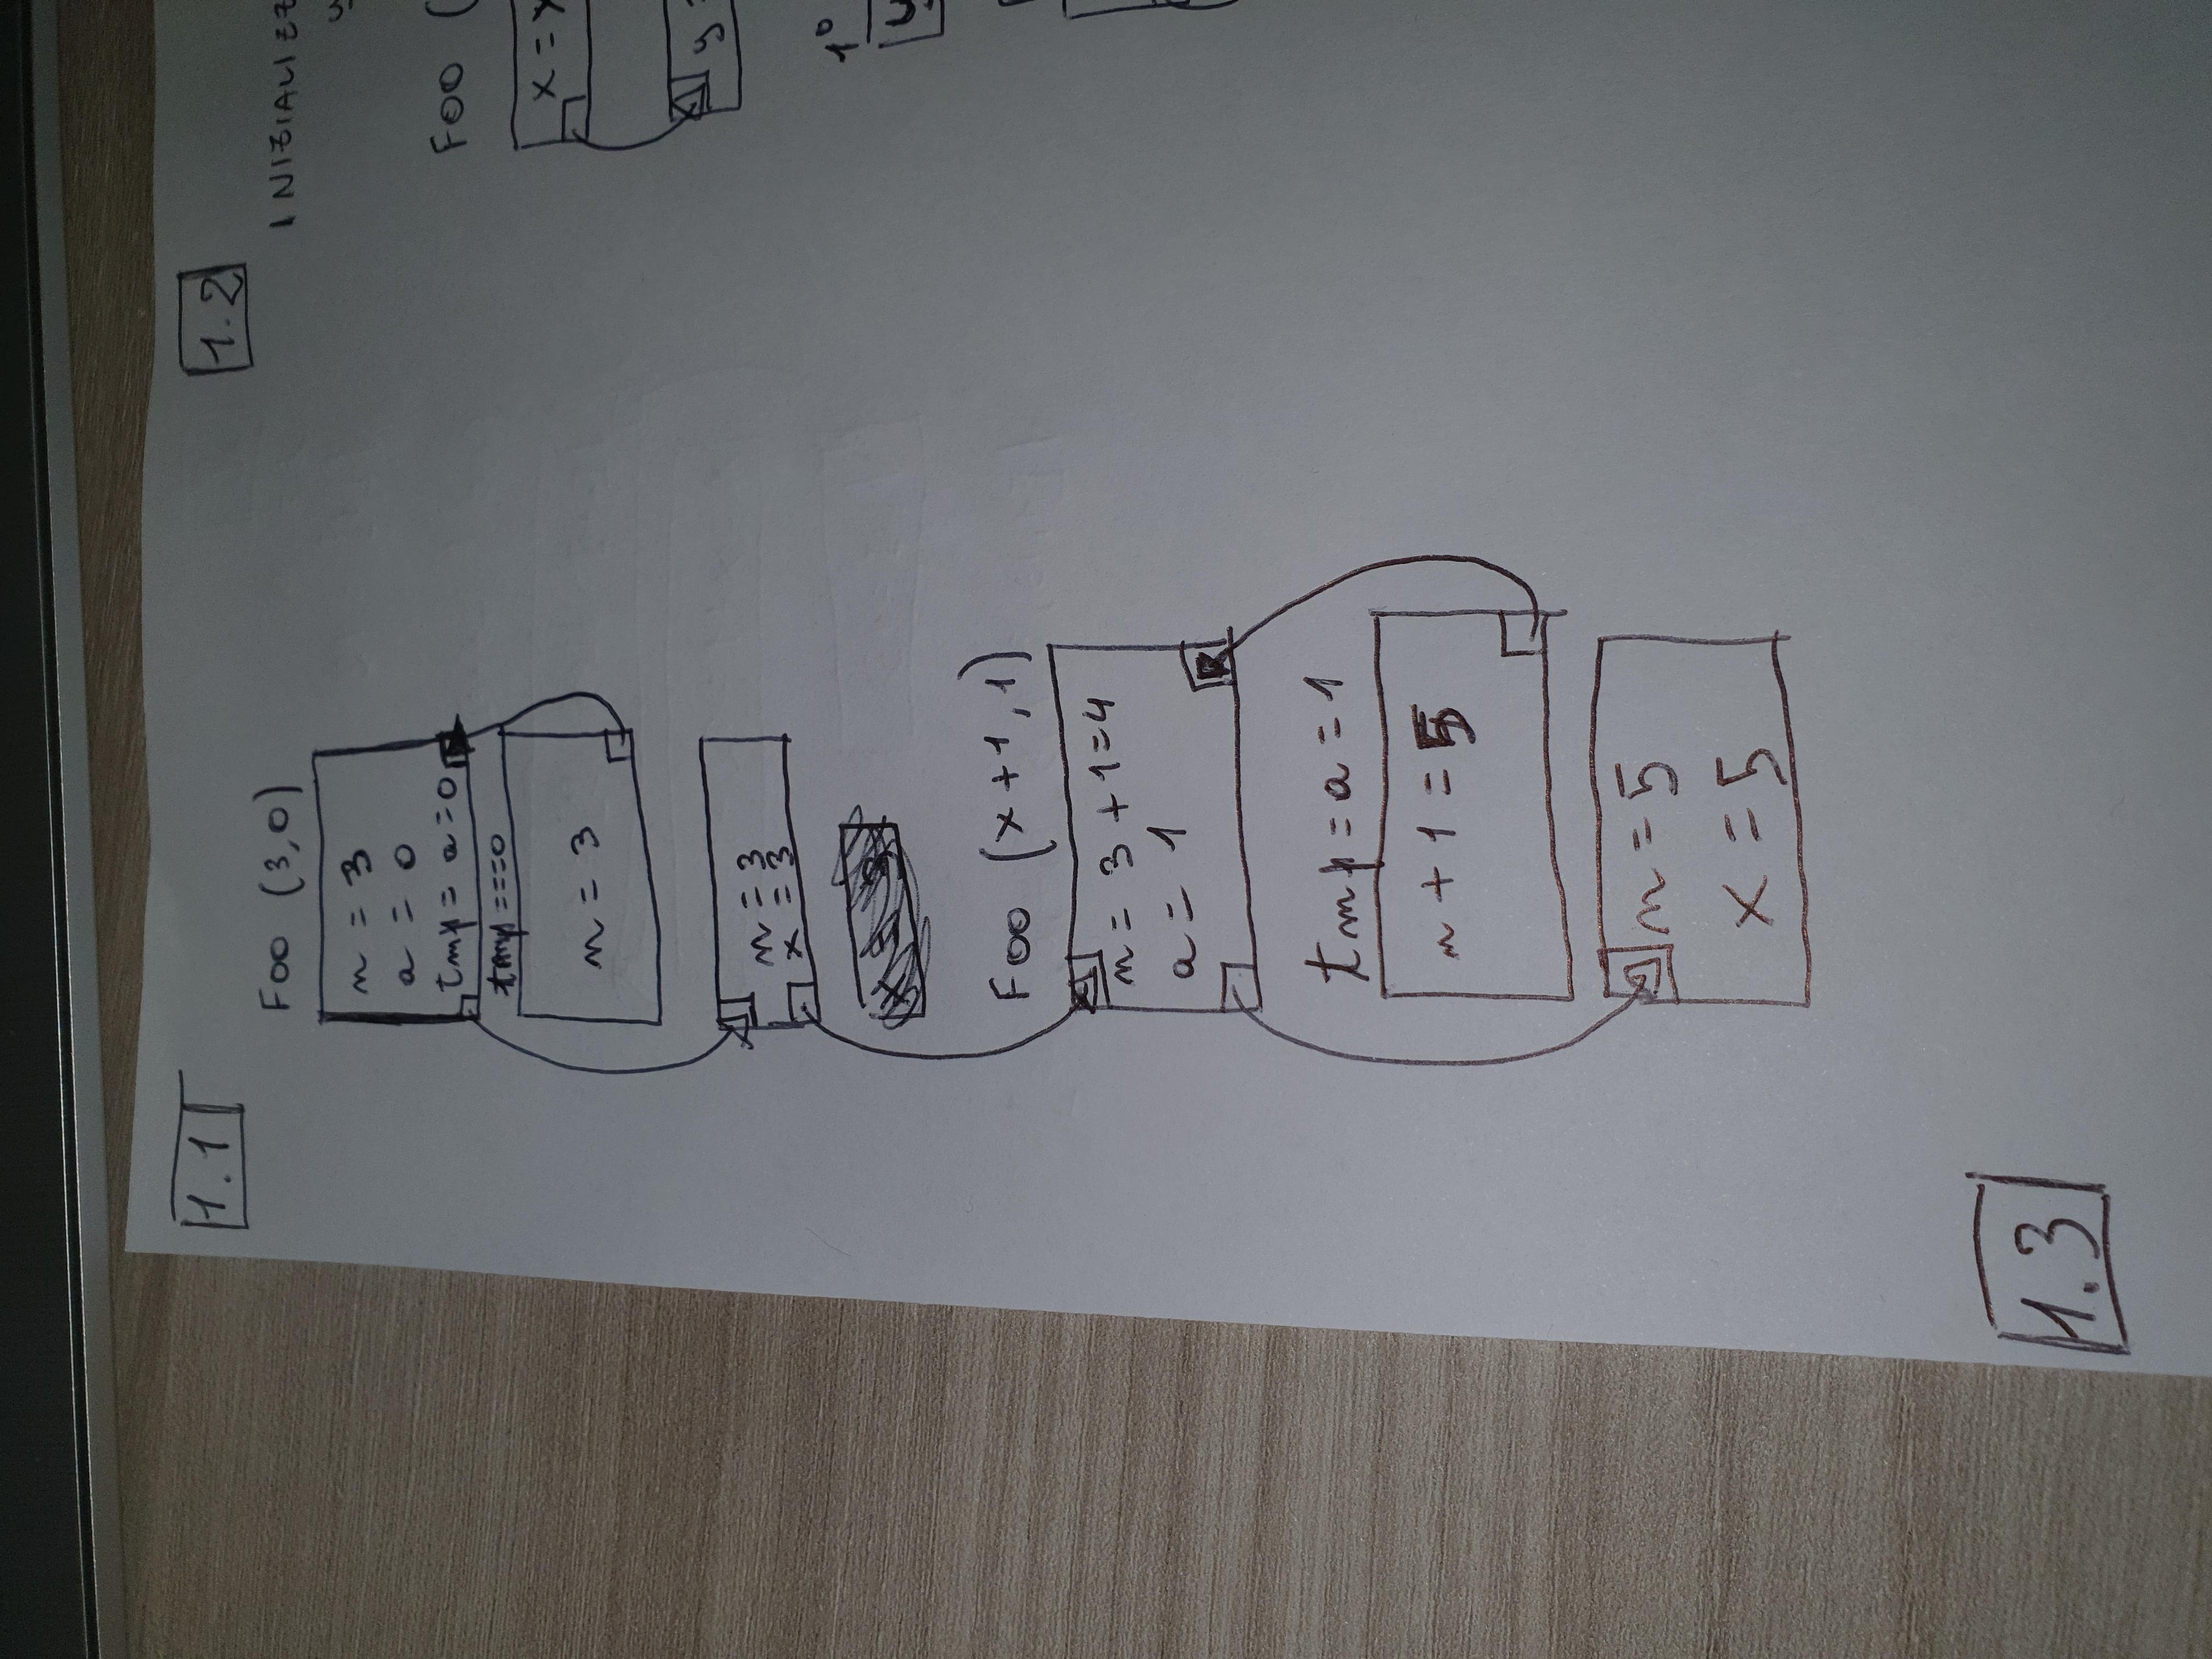 1.1
Foo (3,0)
n = 3
a = 0
tmp = a = 0
tmp === 0
n = 3
n = 3
x = 3
Foo (x+1, 1)
n = 3 + 1 = 4
a = 1
tmp = a = 1
n + 1 = 5
n = 5
x = 5
1.3
1.2
INIZIALIZZ
Foo (
x =
y
1°